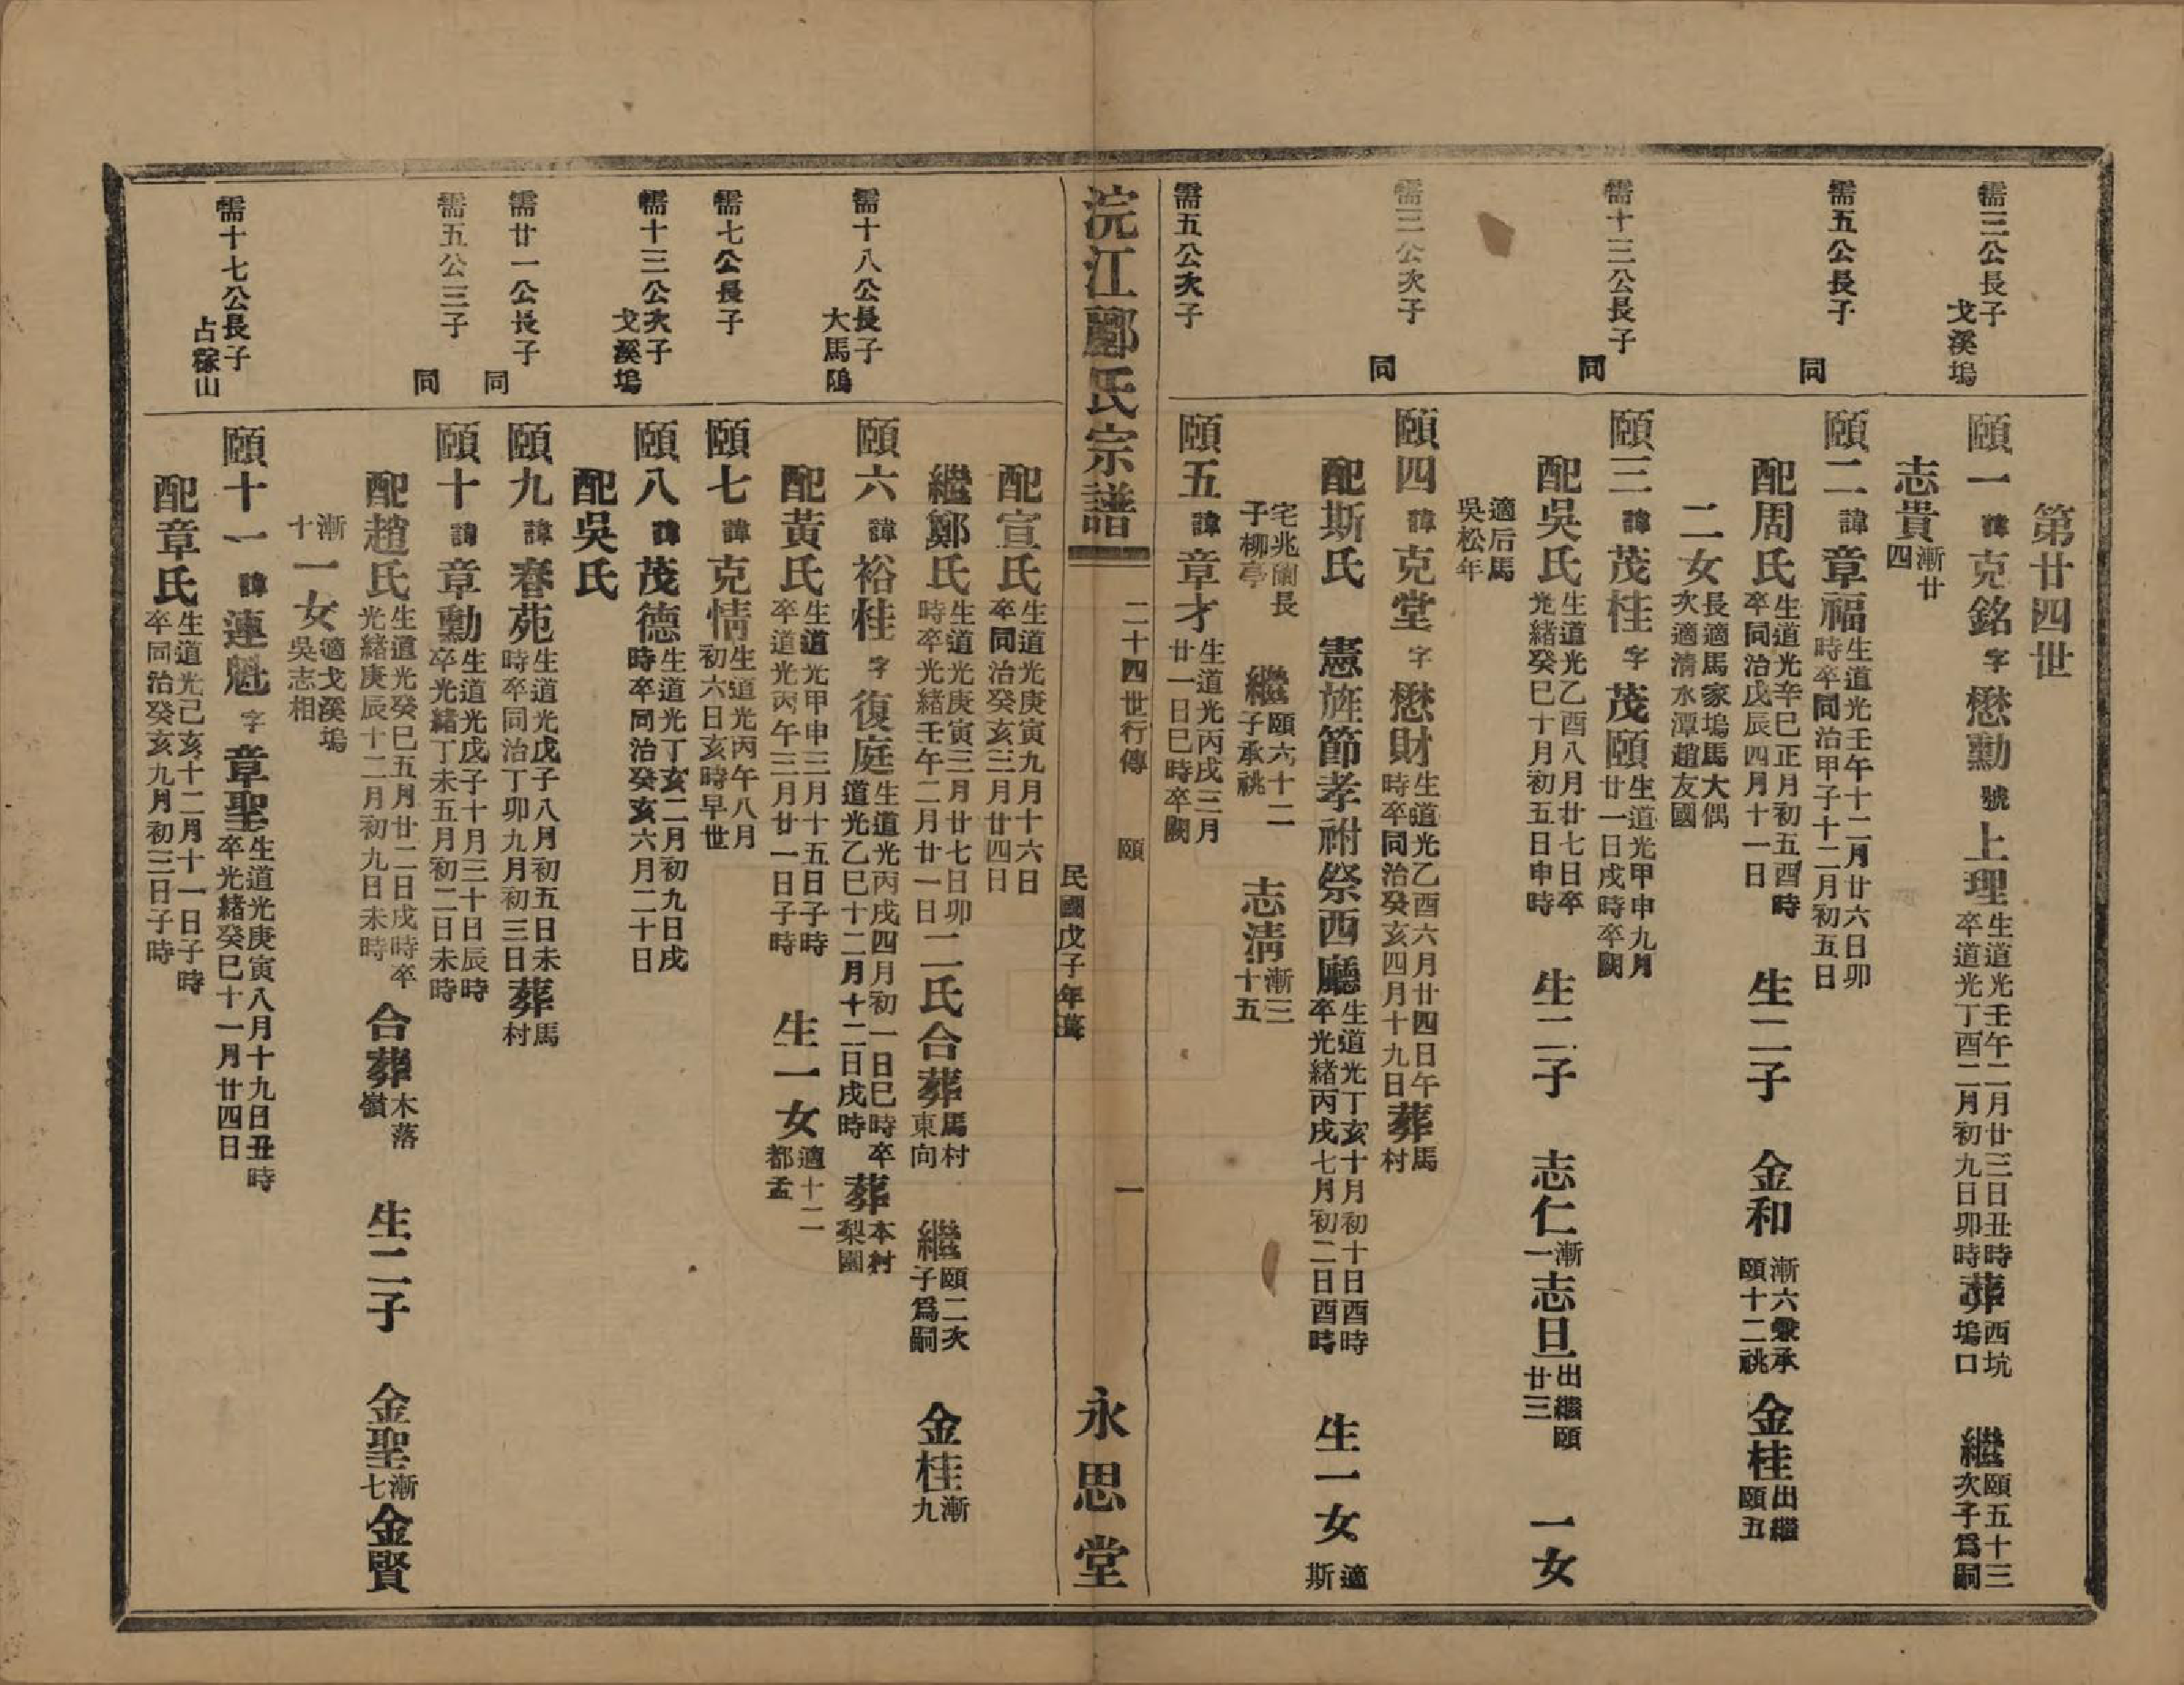 第廿四世
需三公長子
戈溪塢
頤一諱克銘字懋勳號上理生道光壬午二月廿三日丑時卒道光丁酉二月初九日卯時葬西坑塢口 繼頤五十三次子爲嗣
志貴漸廿四
需五公長子 同
頤二諱章福生道光壬午十二月廿六日卯時卒同治甲子十二月初五日
配周氏生道光辛巳正月初五酉時卒同治戊辰四月十一日 生二子 金和漸六兼承頤十二祧金桂出繼頤五
二女長適馬家塢馬大偶次適清水潭趙友國
需十三公長子 同
頤三諱茂桂字茂頤生道光甲申九月廿一日戌時卒闕
配吳氏生道光乙酉八月廿七日卒光緒癸巳十月初五日申時 生二子 志仁漸一志旦出繼頤廿三 一女
適后馬吳松年
需三公次子 同
頤四諱克堂字懋財生道光乙酉六月廿四日午時卒同治癸亥四月十九日葬馬村
配斯氏 憲旌節孝祔祭西廳生道光丁亥十月初十日酉時卒光緒丙戌七月初二日酉時 生一女適斯
宅兆蘭長子柳亭 繼頤六十二子承祧 志清漸三十五
需五公次子
頤五諱章才生道光丙戌三月廿一日巳時卒闕
浣江酈氏宗譜 二十四世行傳 頤 一 永思堂
民國戊子年葺
配宣氏生道光庚寅九月十六日卒同治癸亥三月廿四日
繼鄭氏生道光庚寅三月廿七日卯時卒光緒壬午二月廿一日二氏合葬馬村東向 繼頤二次子爲嗣 金桂漸九
需十八公長子
大馬隖
頤六諱裕桂字復庭生道光丙戌四月初一日巳時卒道光乙巳十二月十二日戌時葬本村梨園
配黃氏生道光甲申三月十五日子時卒道光丙午三月廿一日子時 生一女適十二都孟
需七公長子
頤七諱克情生道光丙午八月初六日亥時早世
需十三公次子
戈溪塢
頤八諱茂德生道光丁亥二月初九日戌時卒同治癸亥六月二十日
配吳氏
需廿一公長子 同
頤九諱春苑生道光戊子八月初五日未時卒同治丁卯九月初三日葬馬村
需五公三子 同
頤十諱章勳生道光戊子十月三十日辰時卒光緒丁未五月初二日未時
配趙氏生道光癸巳五月廿二日戌時卒光緒庚辰十二月初九日未時 合葬木落嶺 生二子 金聖漸七金賢
漸十一女適戈溪塢吳志相
需十七公長子
占稼山
頤十一諱蓮魁字章聖生道光庚寅八月十九日丑時卒光緒癸巳十一月廿四日
配章氏生道光己亥十二月十一日子時卒同治癸亥九月初三日子時